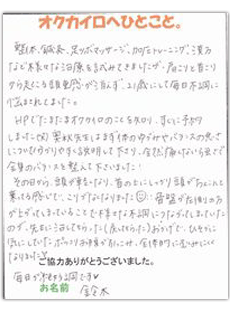 オクカイロへひとこと。
整体、鍼灸、足ツボマッサージ、加圧トレーニング、漢方
など様々な治療を試みてきましたが、肩こりと首こり
から来る頭重感が消えず、21歳にして毎日不調に
悩まされました。
HPでたまたまオクカイロのことを知り、すぐに予約
しました。奥秋先生はまず体のゆがみやバランスの悪さ
についてわかりやすく説明して下さり、全然痛くない方法で
全身のバランスを整えて下さいました!
その日から、頭が軽くなり、首の上にしっかり頭がおかれて
乗ってる感じで、こりがなくなりました 骨盤が右側の方が
上がってしまっていることで様々な不調につながっていました
ので、先生に治してもらった おかげで、ひそかに
気にしていたポッコリお腹が引っこみ、全体的に
なりました
ご協力ありがとうございました。
毎日が 調です
お名前